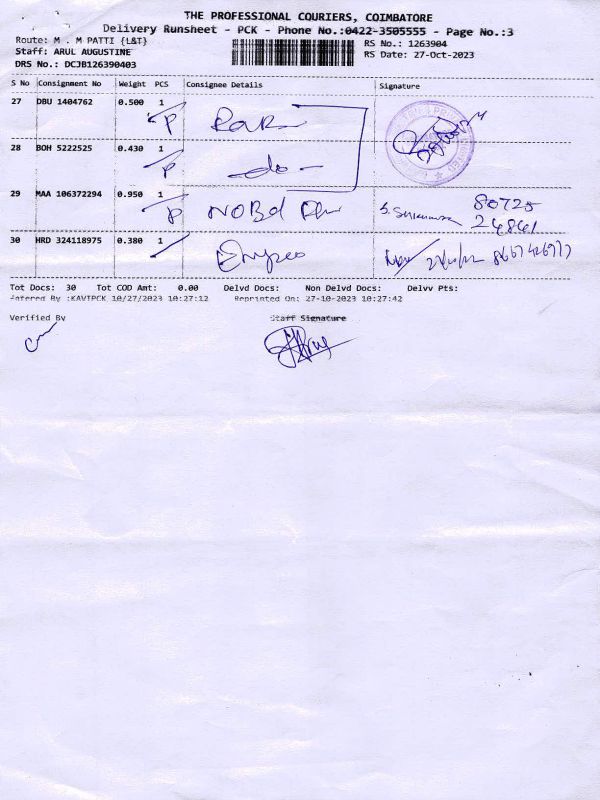 THE PROFESSIONAL COURIERS, COIMBATORE
Delivery Runsheet - PCK - Phone No.:0422-3505555 - Page No.:3
Route: M . M PATTI {L&T}
RS No.: 1263904
Staff: ARUL AUGUSTINE
RS Date: 27-Oct-2023
DRS No.: DCJB126390403
S No Consignment No Weight PCS Consignee Details Signature
27 DBU 1404762 0.500 1
P
28 BOH 5222525 0.430 1
P -do-
29 MAA 106372294 0.950 1
P 80725
24841
30 HRD 324118975 0.380 1
Tot Docs: 30 Tot COD Amt: 0.00 Delvd Docs: Non Delvd Docs: Delvv Pts:
Entered By :KAVTPCK 10/27/2023 10:27:12 Reprinted On: 27-10-2023 10:27:42
Verified By Staff Signature